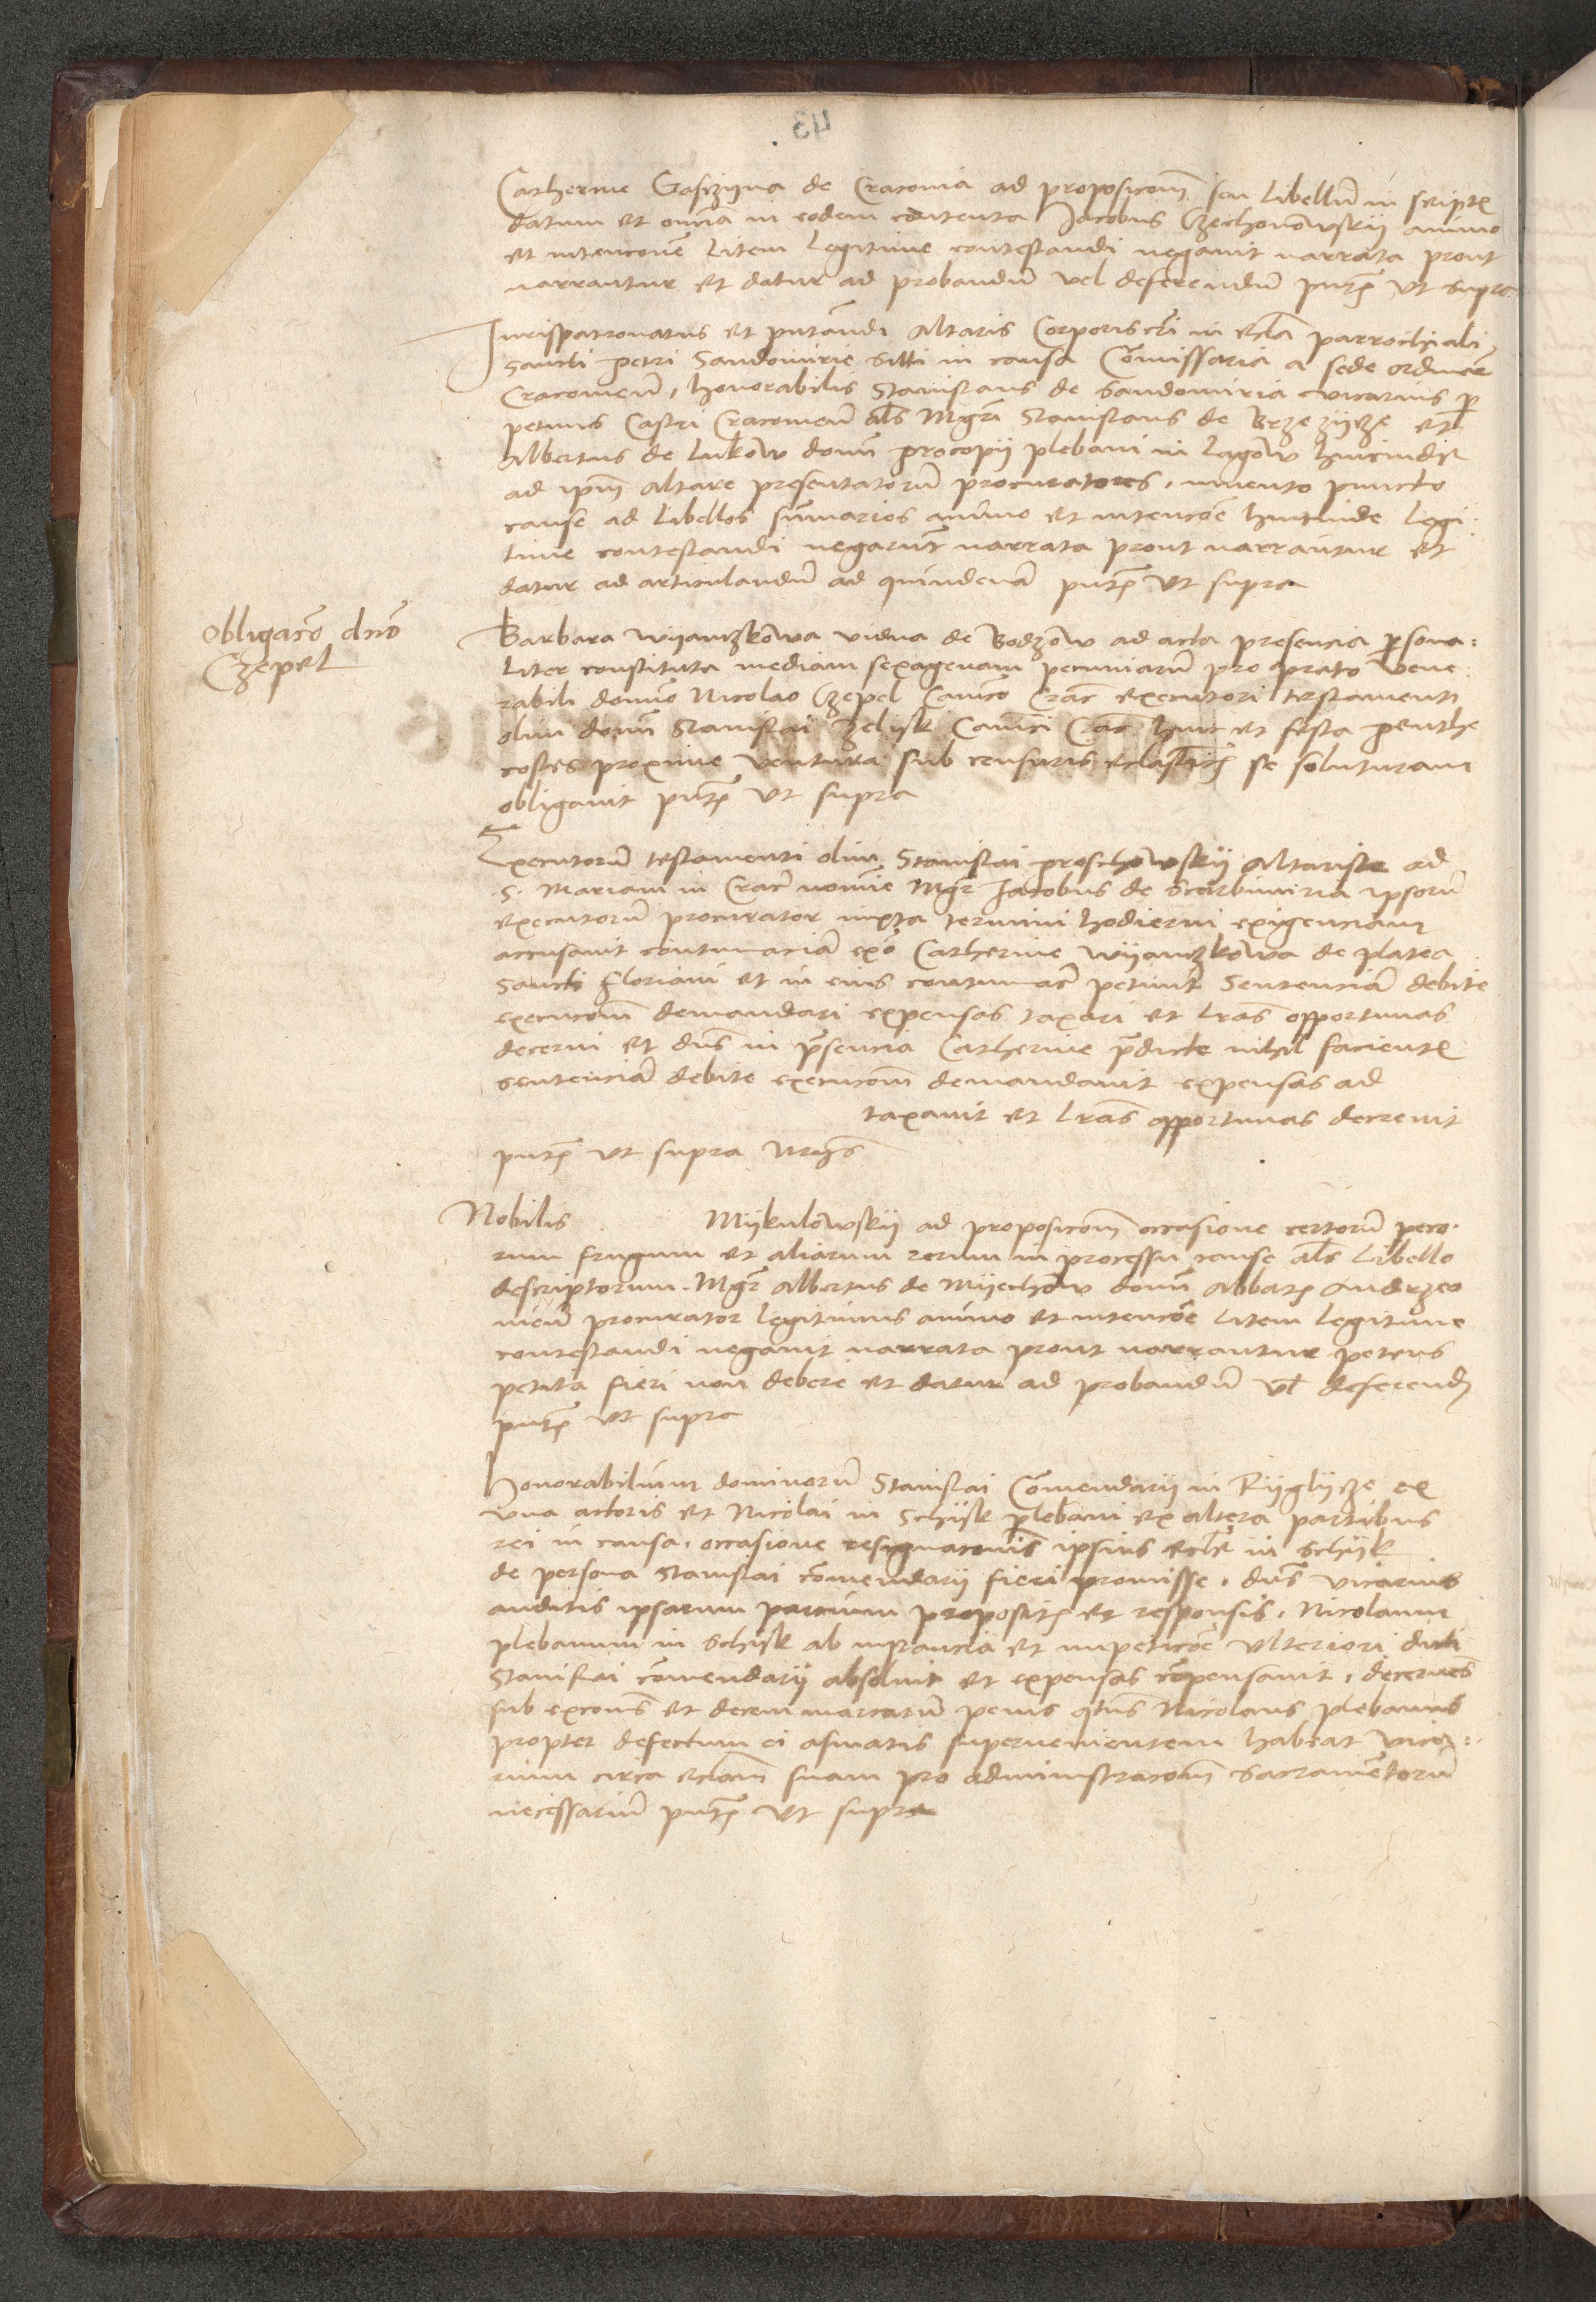 43
Catherine Gasczyna de Cracovia ad proposicom̄ seu Libellū in scriptꝭ
datum et om̄ia in eodem contenta Jacobus Czechonowskij animo
et intencione Litem Legitime contestandi negavit narrata prout
narrantur et datur ad probandū vel deferendū pn̄tꝭ vt supra
Jurispatronatus et pn̄tandi Altaris Corporiscr̄i in eccl̄a parrochiali
sancti petri Sandomirie siti in causa Com̄issaria a sede ordinar̄
Cracovien̄, honorabilis Stanislaus de Sandomiria vicarius per
petuus Castri Cracovien̄ al̄s Mgr̄i Stanislaus de Brzezijcze et
Albertus de Lukow domī procopij plebani in Lagow hincinde
ad ip̄m Altare presentatorū procuratores, invento puncto
cause ad Libellos sum̄arios animo et intencōe hincinde Legi
time contestandi negarūt narrata prout narrantur et
datur ad articulandū ad quindenā pn̄tꝭ vt supra
Obligacō dn̄o
Czepel
Barbara Wijanczkowa vidua de Bodzow ad acta presencia persona
liter constituta mediam sexagenam pecuniarū pro prato vene
rabili domīo Nicolao Czepel Canīco Crac̄ executori testamenti
olim domī Stanislai Zelijsk Canīci Crac̄ hinc et festa penthe
costes proxime ventura sub censuris eccl̄asticꝭ se soluturam
obligavit pn̄tꝭ vt supra
Executorū testamenti olim Stanislai proschowskij Altariste ad
S. Mariam in Crac̄ nomīe Mgr̄ Jacobus de Scarbimiria ipsorū
executorū procurator iuxta termini hodierni exigenciam
accusavit contumaciā exō Catherine Wijanczkowa de platea
Sancti Floriani et in eius contumac̄ petivit Sentenciā debite
execucom̄ demandari expensas taxari et Lr̄as opportunas
decerni et dn̄s in pr̄sencia Catherine pr̄dicte nihil facientꝭ
sentenciā debite execucom̄ demandavit expensas ad
taxavit et Lr̄as opportunas decrevit
pn̄tꝭ vt supra
Nobilis Mijkulowskij ad proposicom̄ occasione certorū peco
rum frugum et aliarum rerum in processu cause al̄s Libello
descriptorum. Mgr̄ Albertus de Mijechow domī Abbatꝭ Andrzeo
vien̄ procurator Legitimus animo et intencōe Litem Legitime
contestandi negavit narrata prout narrantur petens
petita fieri non debere et datur ad probandū vel deferend̄
pn̄tꝭ vt supra
Honorabilium dominorū Stanislai Com̄endarij in Rijglijcze ex
vna actoris et Nicolai in Schijk plebani ex altera partibus
rei in causa, occasione resignacionis ipsius eccl̄e in Schijk
de persona Stanislai com̄endarij fieri promisse, dn̄s vicarius
auditis ipsarum parcium propositꝭ et responsis, Nicolaum
plebanum in Schijk ab instancia et impeticōe vlteriori dicti
Stanislai com̄endarij absolvit et expensas co̅pensavit, decernēs
sub excōis et decem marcarū penis qten̄s Nicolaus plebanus
propter defectum ei asmatis supervenientem habeat vica
rium circa eccl̄am suam pro administracom̄ sacramētorū
necessariū pn̄tꝭ vt supra